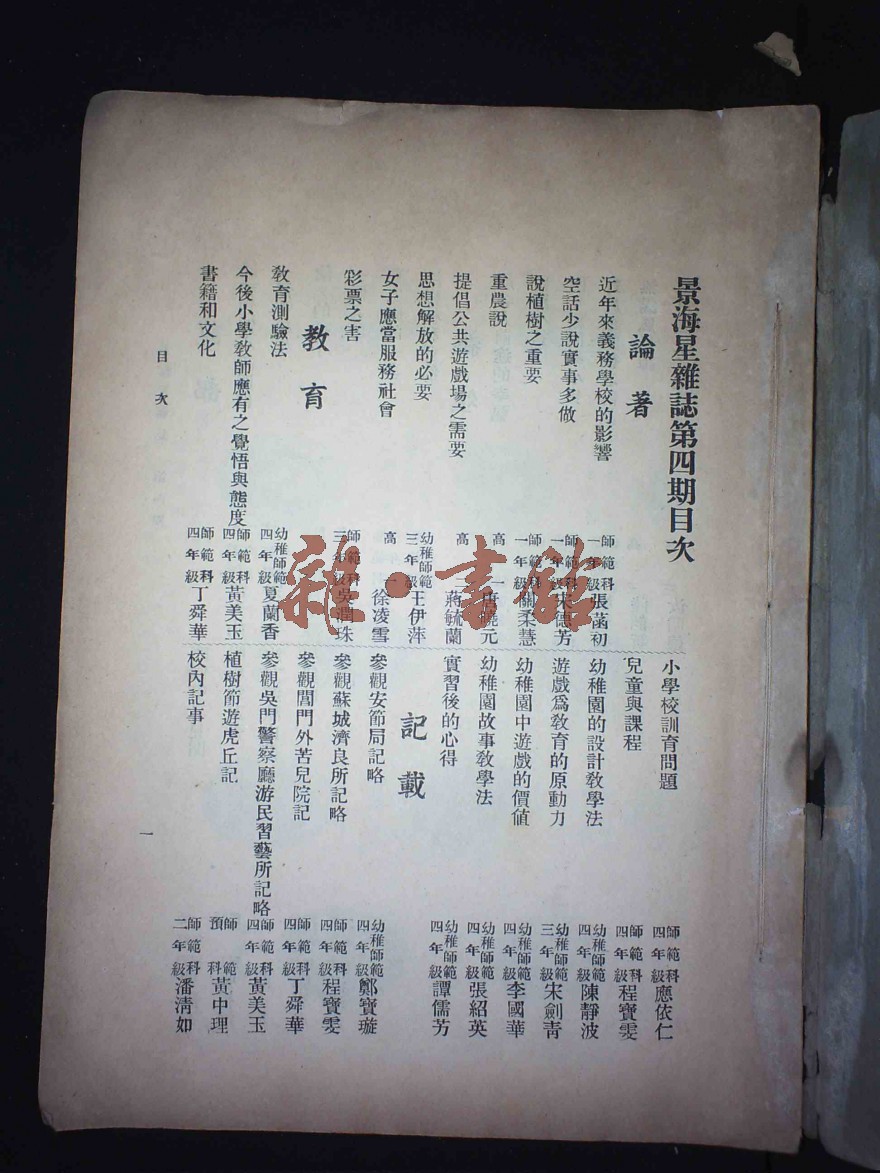 景海星雜誌第四期目次
論著
近年來義務學校的影響 師範科一年級 張菡初
空話少說實事多做 師範科一年級 宋德芳
說植樹之重要 師範科一年級 關柔慧
重農說 高一 唐曉元
提倡公共遊戲場之需要 高 蔣毓蘭
思想解放的必要 幼稚師範三年級 王伊萍
女子應當服務社會 高一 徐凌雪
彩票之害 師範科三年級 吳潤珠
教育
教育測驗法 幼稚師範四年級 夏蘭香
今後小學教師應有之覺悟與態度 師範科四年級 黃美玉
書籍和文化 師範科四年級 丁舜華
小學校訓育問題 師範科四年級 應依仁
兒童與課程 師範科四年級 程寶雯
幼稚園的設計教學法 幼稚師範四年級 陳靜波
遊戲爲教育的原動力 幼稚師範三年級 宋劍青
幼稚園中遊戲的價值 幼稚師範四年級 李國華
幼稚園故事教學法 幼稚師範四年級 張紹英
實習後的心得 幼稚師範四年級 譚儒芳
記載
參觀安節局記略 幼稚師範四年級 鄭寶璇
參觀蘇城濟良所記略 師範科四年級 程寶雯
參觀閶門外苦兒院記 師範科四年級 丁舜華
參觀吳門警察廳游民習藝所記略 師範科四年級 黃美玉
植樹節遊虎丘記 師範預科 黃中理
校內記事 師範科二年級 潘清如
目次
一
雜·書館